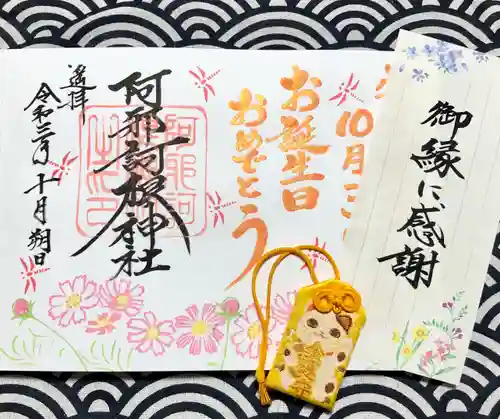 お誕生日
おめでとう
10月
阿邪訶根神社
遙拝
令和二年十月朔日
御縁に感謝